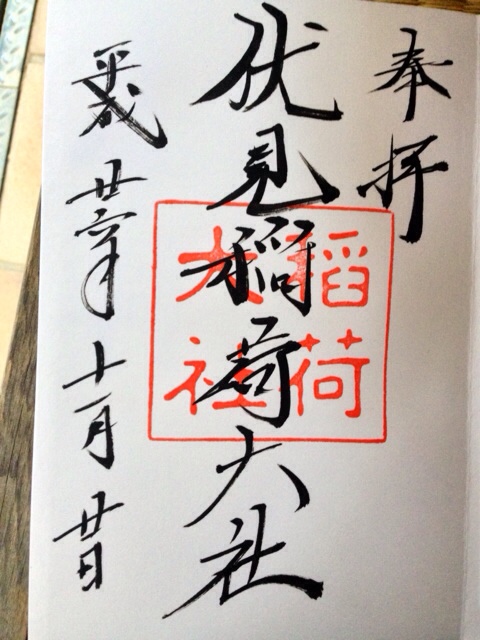 奉拝
伏見稲荷大社
平成廿六年十一月廿日
稲荷
大社